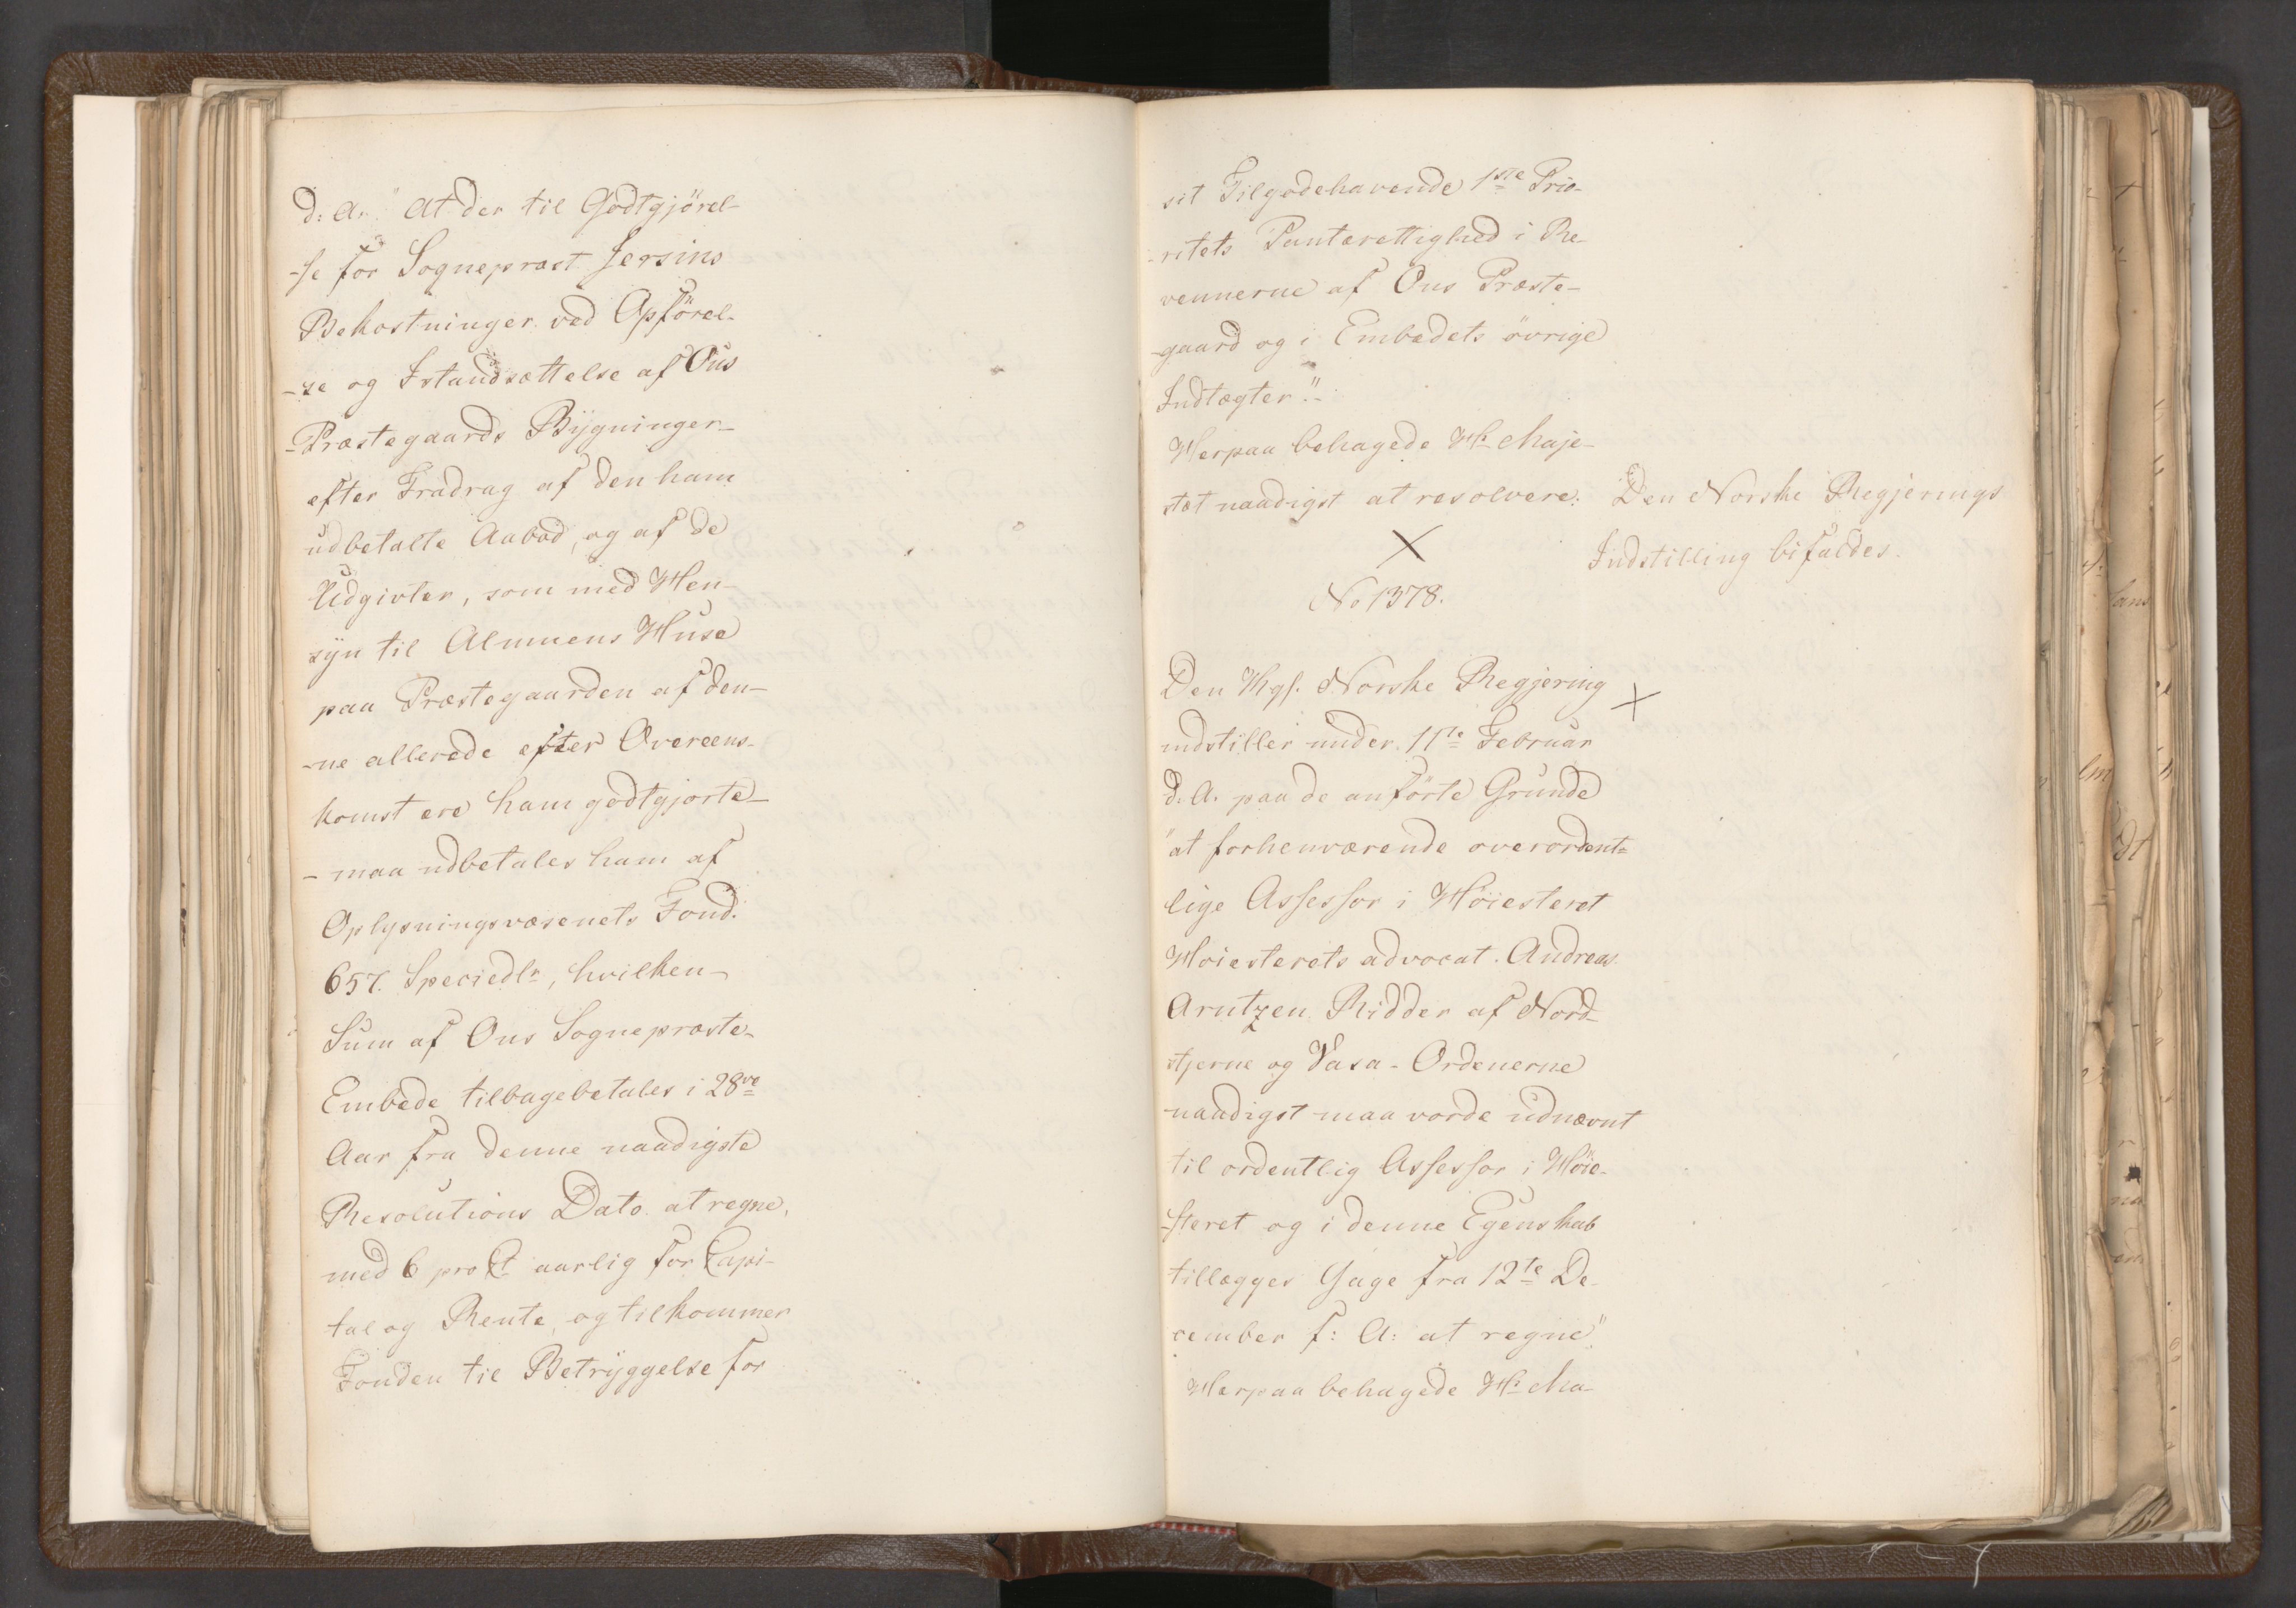 d: A: "at der til Godtgjörel-
-se for Sogneprest Jersins
Bekostninger ved Opförel-
-se og Istandsættelse af Ous
-Præstegaards Bÿgninger-
efter Fradrag af den ham
udbetalte Aabod, og af de
Udgivter, som med Hen-
sÿn til Almuens Huse
paa Præstegaarden af den-
-ne allerede efter Overeens-
komst ere ham godtgjorte-
- maa udbetales ham af
Oplysningsvæsenets Fond.
657. Speciedlr, hvilken-
Sum af Ous Sognepræste-
Embede tilbagebetales i 28ve
Aar fra denne naadigste
Resolutions Dato at regne,
med 6 pro Ct aarlig for Capi-
tal og Rente, og tilkommer
Fonden til Betrÿggelse for
sit Tilgodehavende 1ste Prio-
-ritets Panterettighed i Re-
vennerne af Ous Præste-
-gaard og i Embedets övrige
Indtægter."-
Herpaa behagede Hs Maje-
stæt naadigst at resolvere: Den Norske Regjerings
Indstilling bifaldes.
No 1378.
Den Kgl. Norske Regjering
indstiller under 11te Februar
d. A. paa de anförte Grunde
"at forhenværende overordent-
lige Assessor i Höiesteret
Höiesterets advocat Andreas
Arntzen Ridder af Nord-
stjerne og Vasa-Ordenerne
naadigst maa vorde udnævnt
til ordentlig Assessor i Höie-
-steret og i denne Egenskab
tillægges Gage fra 12te De-
cember f: A: at regne"
Herpaa behagede Hs Ma-